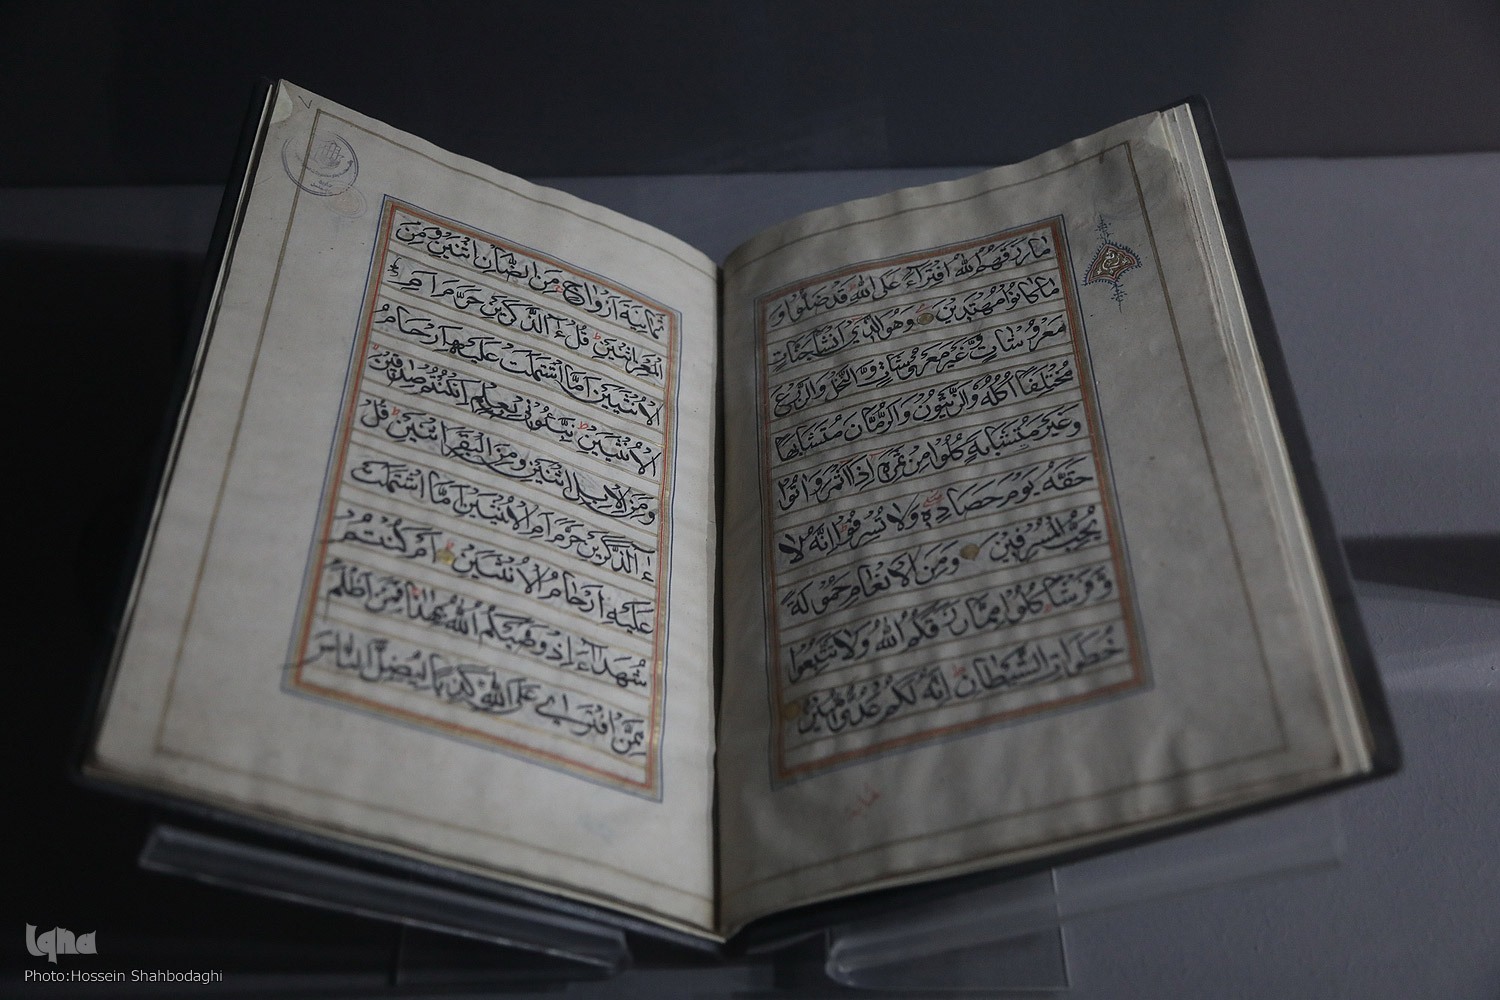 مَا رَزَقَهُمُ اللّٰهُ افْتِرَاءً عَلَى اللّٰهِ قَدْ ضَلُّوا وَ
مَا كَانُوا مُهْتَدِينَ وَهُوَ الَّذِي اَنْشَاَ جَنَّاتٍ
مَعْرُوشَاتٍ وَغَيْرَ مَعْرُوشَاتٍ وَالنَّخْلَ وَالزَّرْعَ
مُخْتَلِفًا اُكُلُهُ وَالزَّيْتُونَ وَالرُّمَّانَ مُتَشَابِهًا
وَغَيْرَ مُتَشَابِهٍ كُلُوا مِنْ ثَمَرِهِ اِذَا اَثْمَرَ وَاٰتُوا
حَقَّهُ يَوْمَ حَصَادِهِ وَلَا تُسْرِفُوا اِنَّهُ لَا
يُحِبُّ الْمُسْرِفِينَ وَمِنَ الْاَنْعَامِ حَمُولَةً
وَفَرْشًا كُلُوا مِمَّا رَزَقَكُمُ اللّٰهُ وَلَا تَتَّبِعُوا
خُطُوَاتِ الشَّيْطَانِ اِنَّهُ لَكُمْ عَدُوٌّ مُبِينٌ
ثمانية
ثَمَانِيَةَ اَزْوَاجٍ مِنَ الضَّاْنِ اثْنَيْنِ وَمِنَ
الْمَعْزِ اثْنَيْنِ قُلْ ءٰالذَّكَرَيْنِ حَرَّمَ اَمِ
الْاُنْثَيَيْنِ اَمَّا اشْتَمَلَتْ عَلَيْهِ اَرْحَامُ
الْاُنْثَيَيْنِ نَبِّئُونِي بِعِلْمٍ اِنْ كُنْتُمْ صَادِقِينَ
وَمِنَ الْاِبِلِ اثْنَيْنِ وَمِنَ الْبَقَرِ اثْنَيْنِ قُلْ
ءٰالذَّكَرَيْنِ حَرَّمَ اَمِ الْاُنْثَيَيْنِ اَمَّا اشْتَمَلَتْ
عَلَيْهِ اَرْحَامُ الْاُنْثَيَيْنِ اَمْ كُنْتُمْ
شُهَدَاءَ اِذْ وَصّٰيكُمُ اللّٰهُ بِهٰذَا فَمَنْ اَظْلَمُ
مِمَّنِ افْتَرٰى عَلَى اللّٰهِ كَذِبًا لِيُضِلَّ النَّاسَ
iqna
Photo:Hossein Shahbodaghi